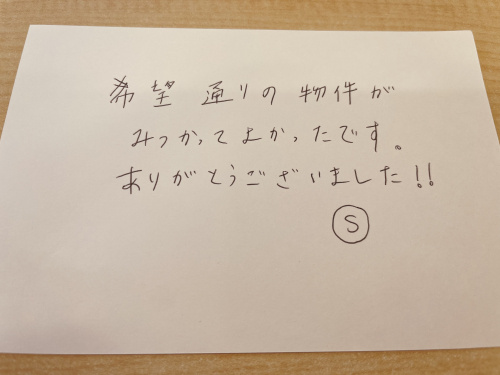 希望通りの物件が
みつかってよかったです。
ありがとうございました!!
S